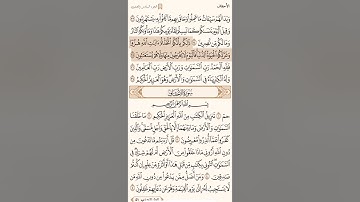 الأحقاف الجزء السادس والعشرون
وَبَدَا لَهُمْ سَيِّـَٔاتُ مَا عَمِلُوا۟ وَحَاقَ بِهِم مَّا كَانُوا۟ بِهِۦ يَسْتَهْزِءُونَ ٣٣
وَقِيلَ ٱلْيَوْمَ نَنسَىٰكُمْ كَمَا نَسِيتُمْ لِقَآءَ يَوْمِكُمْ هَٰذَا وَمَأْوَىٰكُمُ ٱلنَّارُ
وَمَا لَكُم مِّن نَّٰصِرِينَ ٣٤ ذَٰلِكُم بِأَنَّكُمُ ٱتَّخَذْتُمْ ءَايَٰتِ ٱللَّهِ هُزُوًا
وَغَرَّتْكُمُ ٱلْحَيَوٰةُ ٱلدُّنْيَا فَٱلْيَوْمَ لَا يُخْرَجُونَ مِنْهَا وَلَا هُمْ يُسْتَعْتَبُونَ ٣٥
فَلِلَّهِ ٱلْحَمْدُ رَبِّ ٱلسَّمَٰوَٰتِ وَرَبِّ ٱلْأَرْضِ رَبِّ ٱلْعَٰلَمِينَ ٣٦
وَلَهُ ٱلْكِبْرِيَآءُ فِى ٱلسَّمَٰوَٰتِ وَٱلْأَرْضِ وَهُوَ ٱلْعَزِيزُ ٱلْحَكِيمُ ٣٧
سُورَةُ الأَحْقَافِ
بِسْمِ ٱللَّهِ ٱلرَّحْمَٰنِ ٱلرَّحِيمِ
حمٓ ١ تَنزِيلُ ٱلْكِتَٰبِ مِنَ ٱللَّهِ ٱلْعَزِيزِ ٱلْحَكِيمِ ٢ مَا خَلَقْنَا
ٱلسَّمَٰوَٰتِ وَٱلْأَرْضَ وَمَا بَيْنَهُمَآ إِلَّا بِٱلْحَقِّ وَأَجَلٍ مُّسَمًّى وَٱلَّذِينَ
كَفَرُوا۟ عَمَّآ أُنذِرُوا۟ مُعْرِضُونَ ٣ قُلْ أَرَءَيْتُم مَّا تَدْعُونَ مِن دُونِ
ٱللَّهِ أَرُونِى مَاذَا خَلَقُوا۟ مِنَ ٱلْأَرْضِ أَمْ لَهُمْ شِرْكٌ فِى
ٱلسَّمَٰوَٰتِ ٱئْتُونِى بِكِتَٰبٍ مِّن قَبْلِ هَٰذَآ أَوْ أَثَٰرَةٍ مِّنْ عِلْمٍ إِن كُنتُمْ
صَٰدِقِينَ ٤ وَمَنْ أَضَلُّ مِمَّن يَدْعُوا۟ مِن دُونِ ٱللَّهِ مَن
لَّا يَسْتَجِيبُ لَهُۥٓ إِلَىٰ يَوْمِ ٱلْقِيَٰمَةِ وَهُمْ عَن دُعَآئِهِمْ غَٰفِلُونَ ٥